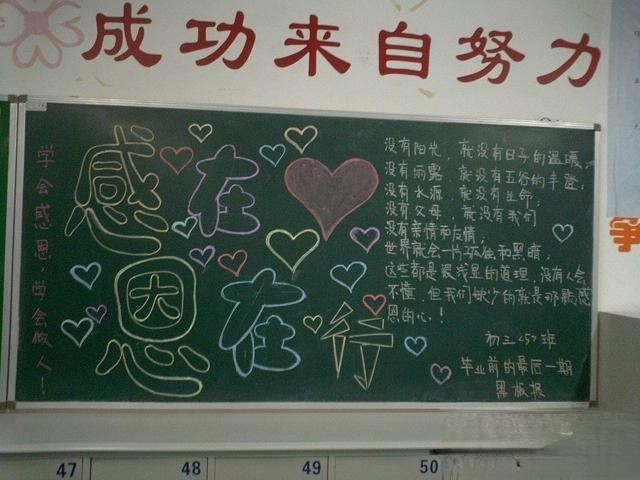 成功来自努力
学会感恩·学会做人!
感在
恩在行
没有阳光，就没有日子的温暖；
没有雨露，就没有五谷的丰登；
没有水源，就没有生命；
没有父母，就没有我们
没有亲情和友情，
世界就会一片孤独和黑暗，
这些都是最浅显的道理，没有人会
不懂，但我们缺少的就是那颗感
恩的心！
初三<5>班
毕业前的最后一期
黑板报
争
47 48 49 50